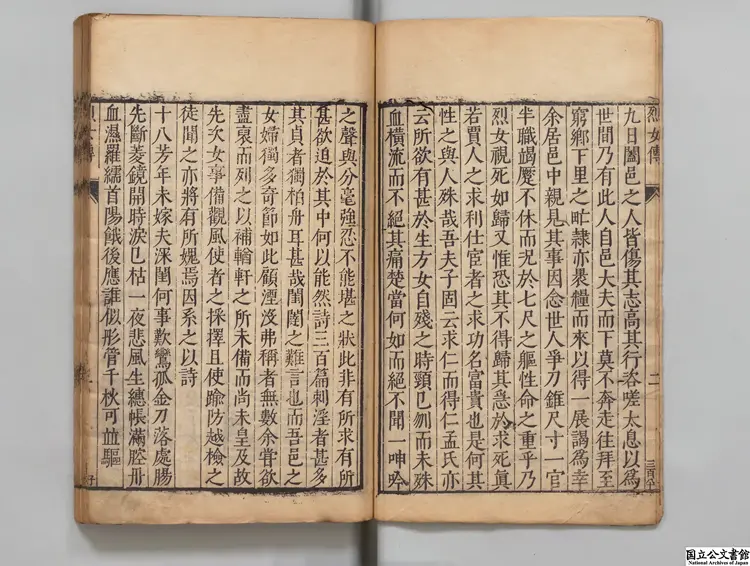 烈女傳
二
九日闔邑之人皆傷其志高其行咨嗟太息以為
世間乃有此人自邑大夫而下莫不奔走往拜至
窮鄉下里之甿隸亦褁糧而來以得一展謁為幸
余居邑中親見其事因念世人爭刀錐尺寸一官
半職竭蹷不休而况於七尺之軀性命之重乎乃
烈女視死如歸又惟恐其不得歸其急於求死眞
若賈人之求利仕宦者之求功名富貴也是何其
性之與人殊哉吾夫子固云求仁而得仁孟氏亦
云所欲有甚於生方女自殘之時頸已刎而未殊
血橫流而不絕其痛楚當何如而絕不聞一呻吟
之聲與分毫強忍不能堪之狀此非有所求有所
甚欲迫於其中何以能然詩三百篇刺淫者甚多
其貞者獨柏舟耳甚哉閨閫之難言也而吾邑之
女婦獨多奇節如此顧湮沒弗稱者無數余嘗欲
盡裒而列之以補輶軒之所未備而尚未皇及故
先次女事備觀風使者之採擇且使踰防越檢之
徒聞之亦將有所媿焉因系之以詩
十八芳年未嫁夫深閨何事歎鸞孤金刀落處腸
先斷菱鏡開時淚已枯一夜悲風生繐帳滿腔丹
血濕羅繻首陽餓後應誰似彤管千秋可並驅
國立公文書館
National Archives of Japan